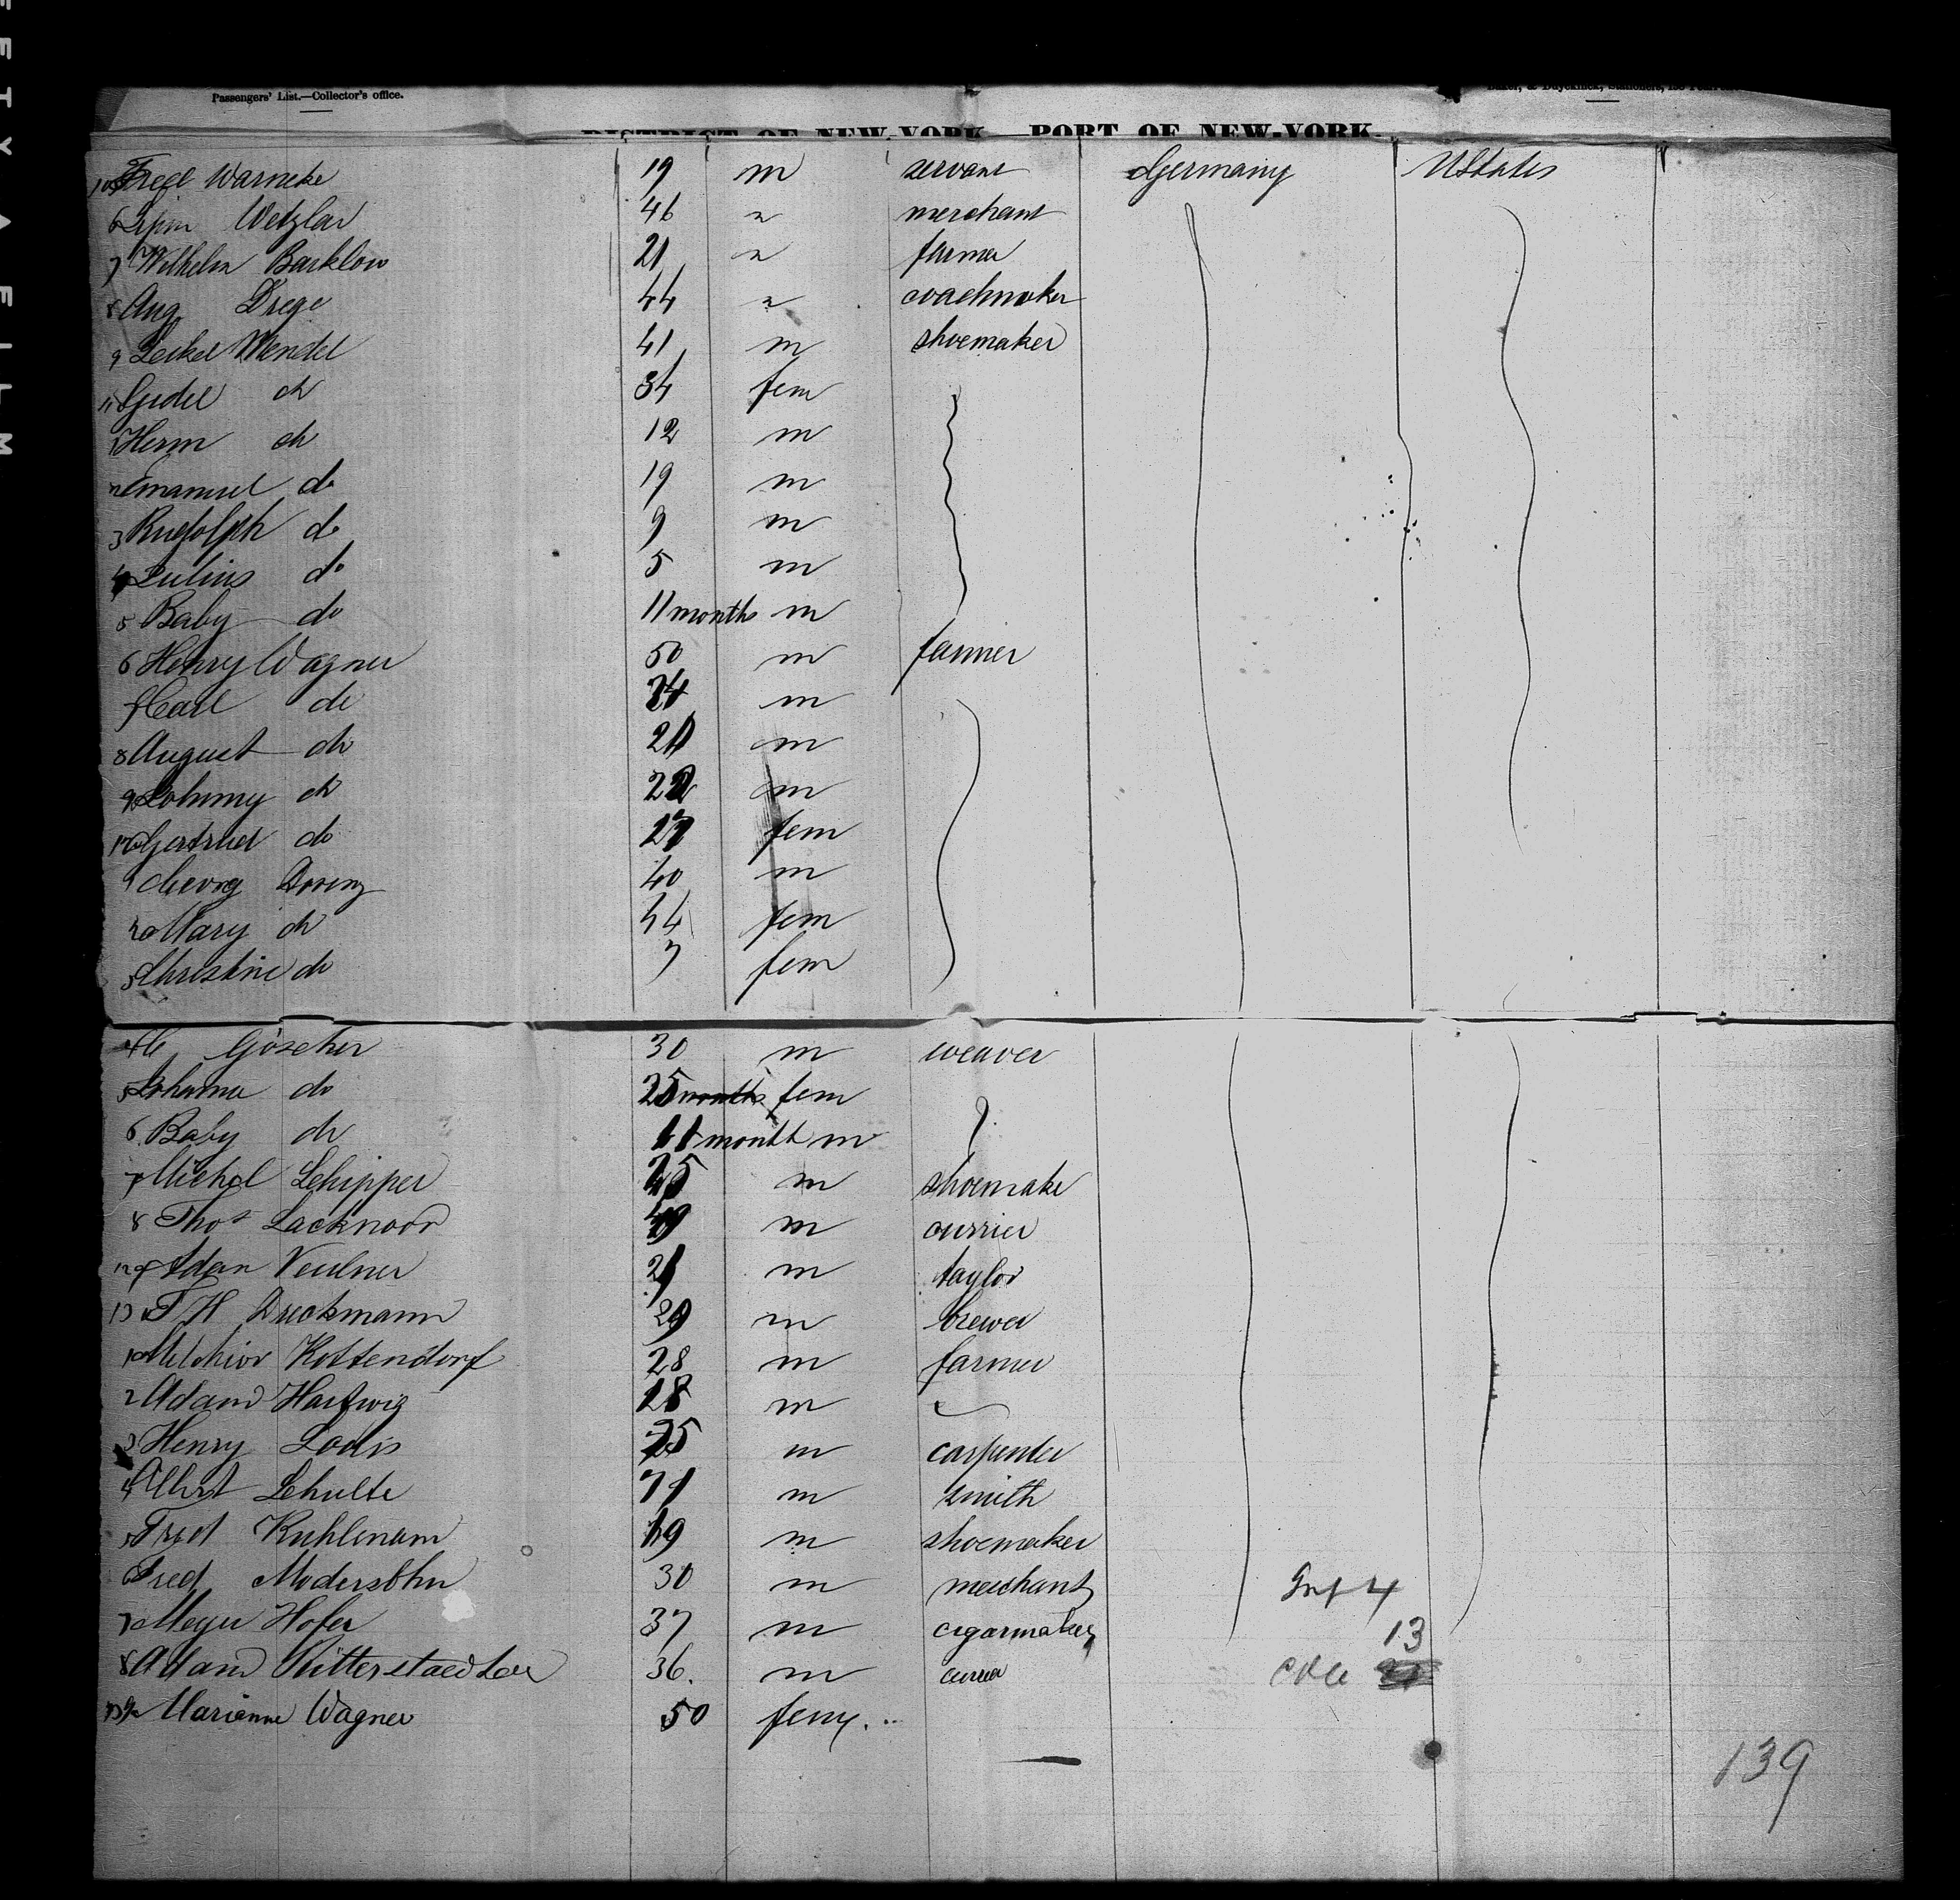 Passengers' List.—Collector's office.
DISTRICT OF NEW-YORK—PORT OF NEW-YORK.
Fred Warneke 19 m servant Germany UStates
6 Wetzlar 46 " merchant
7 Wilhelm Barklow 21 " farmer
8 Aug Drege 44 " coachmaker
9 Seckel Wendel 41 m shoemaker
Gidel do 34 fem
1 Herm do 12 m
2 Emanuel do 19 m
3 Rudolph do 9 m
4 Julius do 5 m
5 Baby do 11 months m
6 Henry Wagner 50 m farmer
7 Carl do 24 m
8 August do m
9 Johnny do 22 m
Gertrud do 27 fem
Georg 40 m
2 Mary do 44 fem
3 Christine do 7 fem
4 Göscher 30 m weaver
5 Johanna do 25 months fem
6 Baby do 11 month m
7 Michel Schipper 25 m shoemake
8 Thos Lacknoor m currier
9 Adam Veulner 21 m taylor
13 Dreckmann 29 m brewer
1 Melchior Kottendorf 28 m farmer
2 Adam Hartwig 18 m
3 Henry Lodis 25 m carpenter
4 Albert Schulte m smith
5 Fred Kuhlmann 19 m shoemaker
6 Fred Modersohn 30 m merchant Inf 4
7 Meyer Hofer 37 m cigarmaker 13
8 Adam Ritterstaedter 36. m
Marianne Wagner 50 fem
139